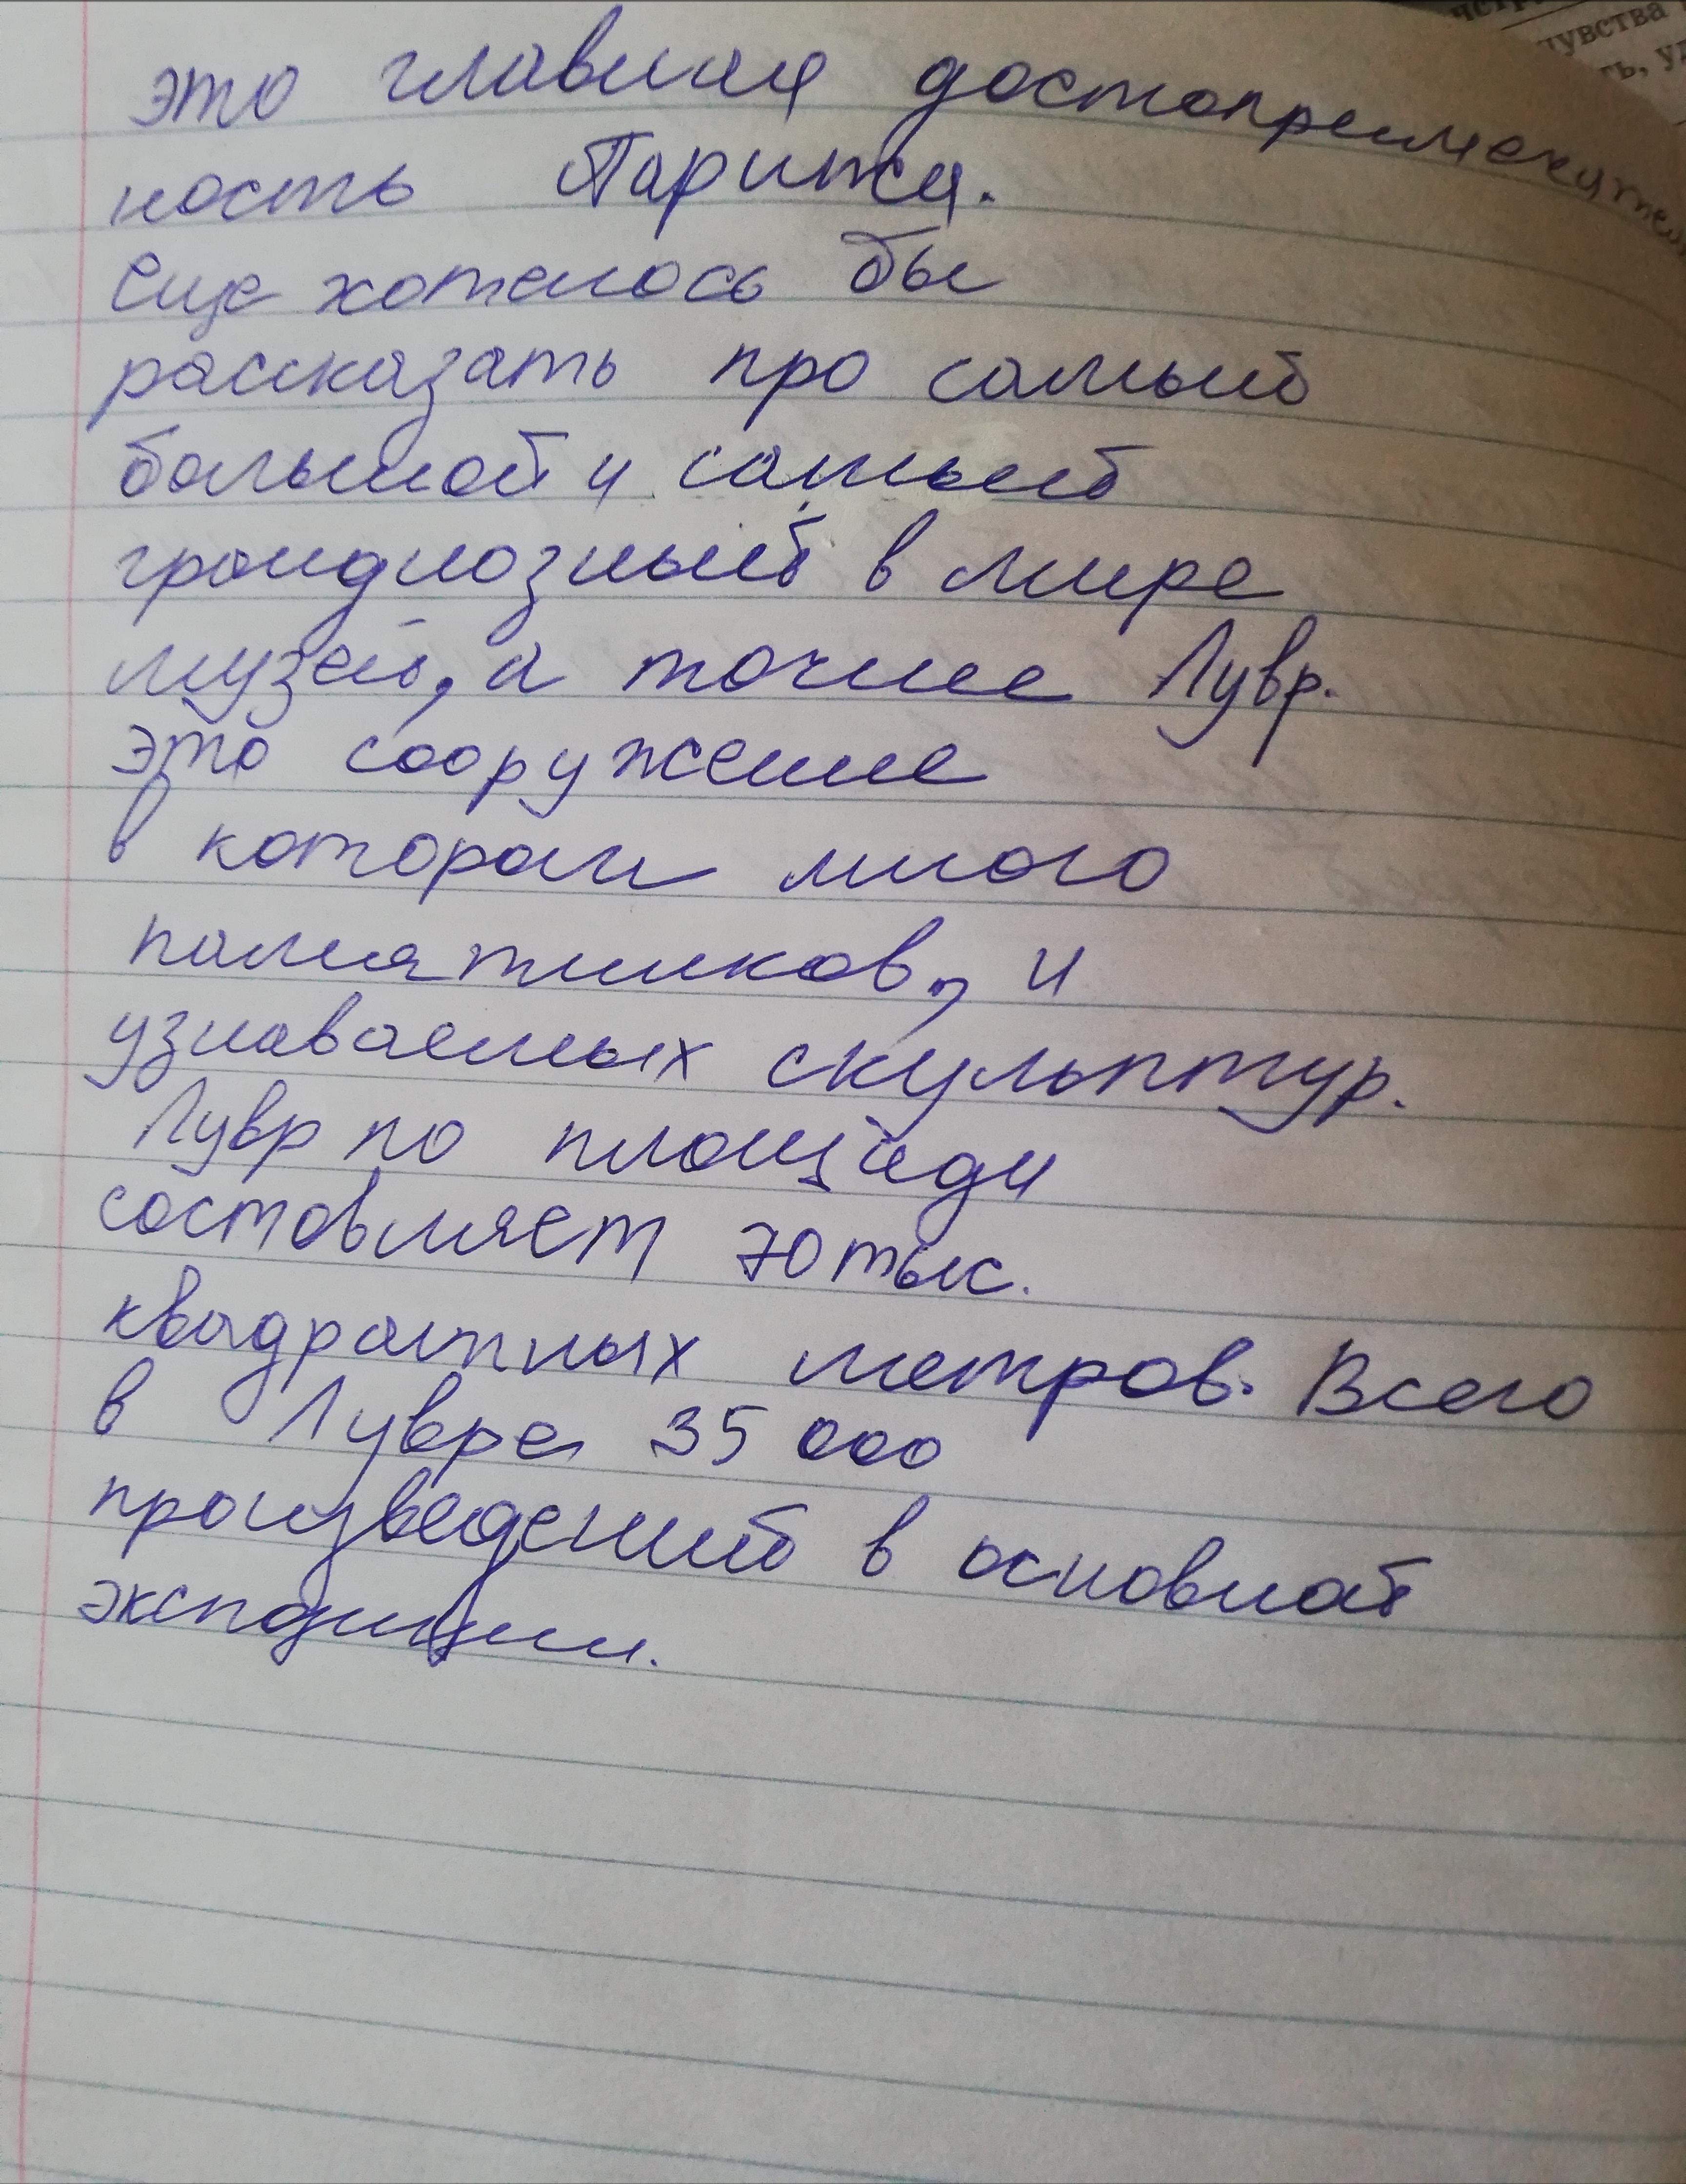 чувства
ть, уд
это главная достопремечател
ность Парижа.
Еще хотелось бы
рассказать про самый
большой и самый
грандиозный в мире
музей, а точнее Лувр.
это сооружение
в котором много
памятников, и
узнаваемых скульптур.
Лувр по площади
состовляет 70 тыс.
квадратных метров. Всего
в Лувре 35 000
произведений в основной
экспозиции.